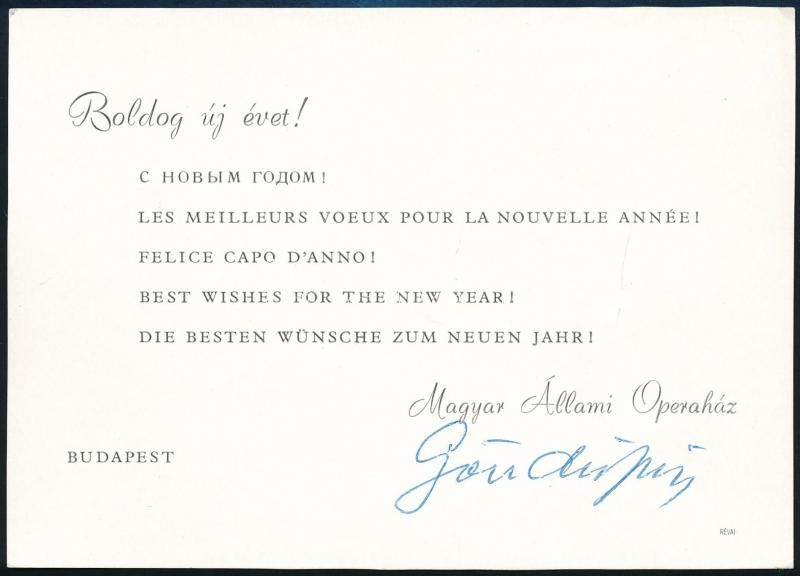 Boldog új évet!
С НОВЫМ ГОДОМ!
LES MEILLEURS VOEUX POUR LA NOUVELLE ANNÉE!
FELICE CAPO D'ANNO!
BEST WISHES FOR THE NEW YEAR!
DIE BESTEN WÜNSCHE ZUM NEUEN JAHR!
Magyar Állami Operaház
BUDAPEST
RÉVAI